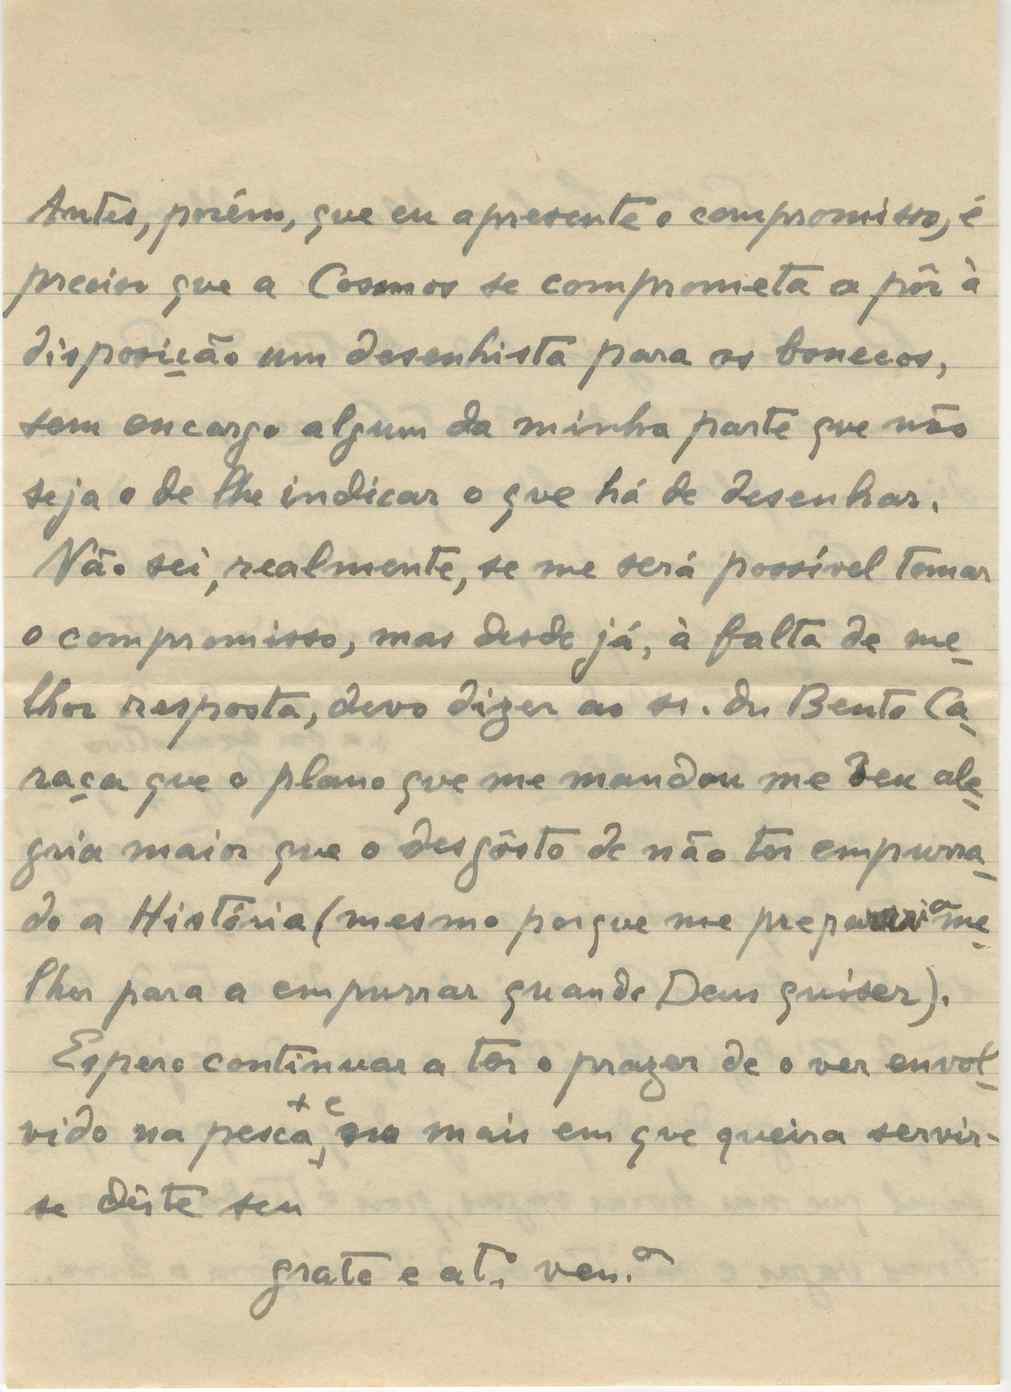 Antes, porém, que eu apresente o compromisso, é
preciso que a Cosmos se comprometa a pôr à
disposição um desenhista para os bonecos,
sem encargo algum da minha parte que não
seja o de lhe indicar o que há de desenhar.
Não sei, realmente, se me será possível tomar
o compromisso, mas desde já, à falta de me-
lhor resposta, devo dizer ao sr. dr. Bento Ca-
raça que o plano que me mandou me deu ale-
gria maior que o desgôsto de não ter empurra-
do a História (mesmo porque me preparia me-
lhor para a empurrar quando Deus quiser).
Espero continuar a ter o prazer de o ver envol-
vido na pesca, e no mais em que queira servir-
se dêste seu
grato e at.º ven.or